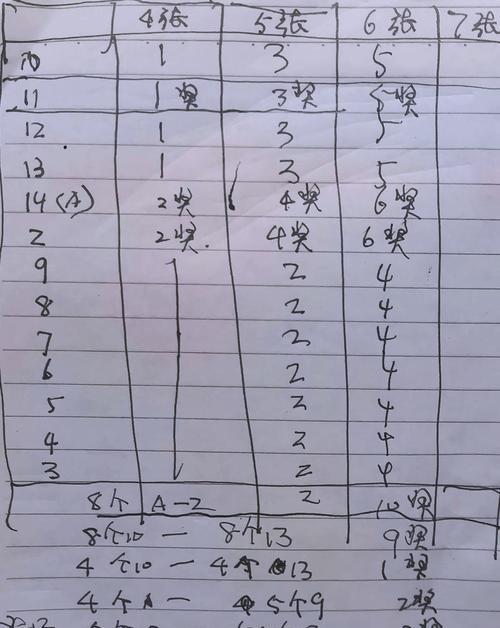 4张 5张 6张 7张
10 1 3 5
11 1奖 3奖 5奖
12 1 3 5
13 1 3 5
14(A) 2奖 4奖 6奖
2 2奖. 4奖 6奖
9 2 4
8 2 4
7 2 4
6 2 4
5 2 4
4 2 4
3 2 4
8个 A-2 2 10奖
8个10一 8个13 9奖
4个10一 4个13 1奖
4个A一 5个9 2奖